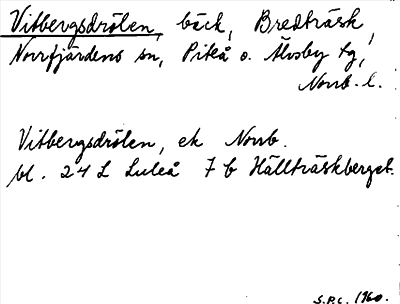 Vitbergsdrölen, bäck, Bredträsk,
Norrfjärdens sn, Piteå o. Älvsby tg,
Norrb. l.
Vitbergsdrölen, ek Norrb.
bl. 24 L Luleå 7 b Hällträskberget.
S.P.C. 1960.